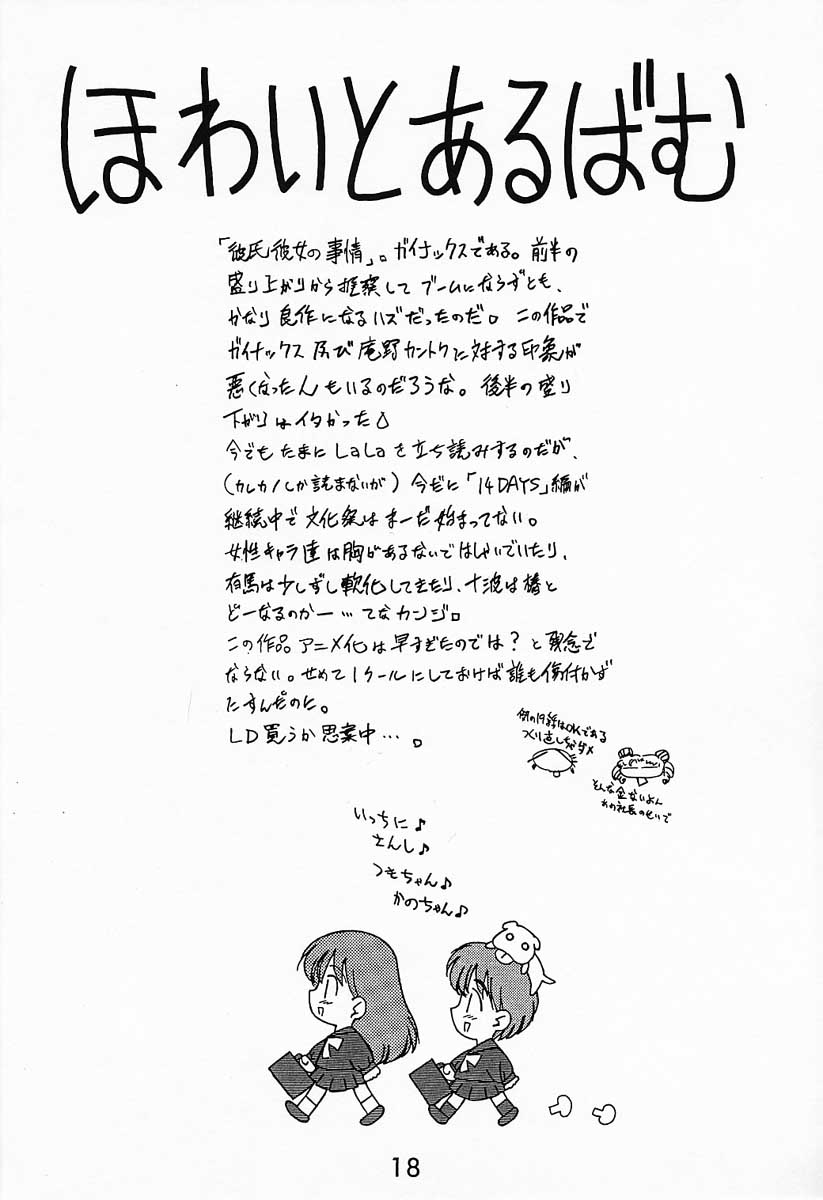 ほわいとあるばむ
「彼氏彼女の事情」。ガイナックスである。前半の
盛り上がりから推察して ブームにならずとも、
かなり良作になるハズだったのだ。この作品で
ガイナックス及び庵野カントクに対する印象が
悪くなったんもいるのだろうな。後半の盛り
下がりはイタかった
今でもたまにLaLaを立ち読みするのだが、
(カレカノしか読まないが)今だに「14DAYS」編が
継続中で文化祭はまーだ始まってない。
女性キャラ達は胸があるないではしゃいでいたり、
有馬は少しずし軟化してきたり、十波は椿と
どーなるのかー…てなカンジ。
この作品アニメ化は早すぎたのでは?と残念で
ならない。せめて1クールにしておけば誰も傷付かず
たすんだのに。
LD買うか思案中…。
例の19話はOKである
つくり直しちゃダメ
そんな金ないよん
あの社長のせいで
いっちに♪
さんし♪
つきちゃん♪
かのちゃん♪
18